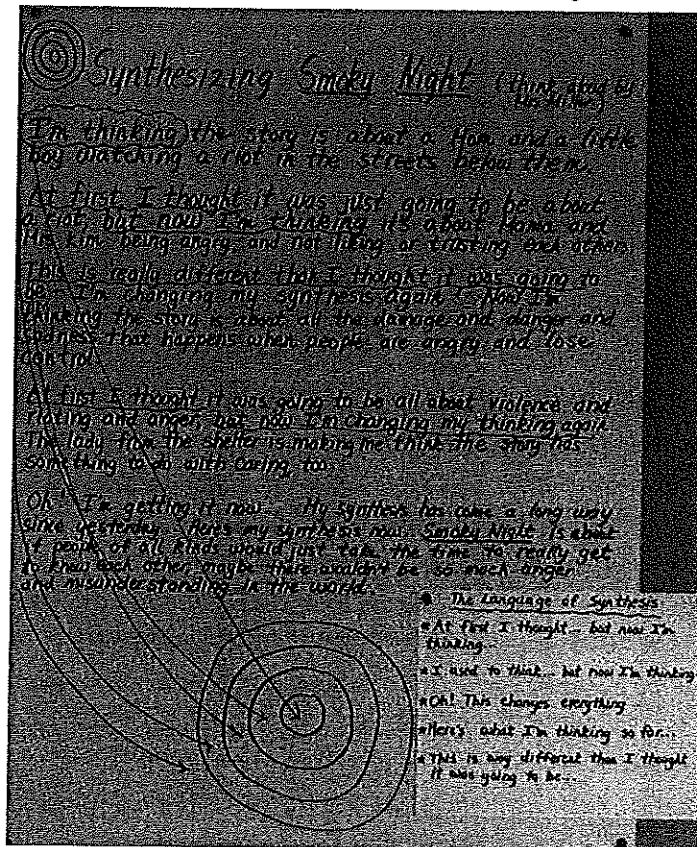 Synthesizing Smoky Night (think along by
I'm thinking the story is about a Mom and a little
boy watching a riot in the streets below them.
At first I thought it was just going to be about
a riot, but now I'm thinking it's about Mama and
Mrs. Kim being angry and not liking or trusting each other.
This is really different that I thought it was going to
be. I'm changing my synthesis again - Now I'm
thinking the story is about all the damage and danger and
sadness that happens when people are angry and lose
control.
At first I thought it was going to be all about violence and
rioting and anger, but now I'm changing my thinking again.
The lady from the shelter is making me think the story has
something to do with caring, too.
Oh! I'm getting it now... My synthesis has come a long way
since yesterday. Here's my synthesis now: Smoky Night is about
if people of all kinds would just take the time to really get
to know each other, maybe there wouldn't be so much anger
and misunderstanding in the world.
The Language of Synthesis
• At first I thought... but now I'm
thinking...
• I used to think... but now I'm thinking
• Oh! This changes everything...
• Here's what I'm thinking so far...
• This is way different than I thought
it was going to be...